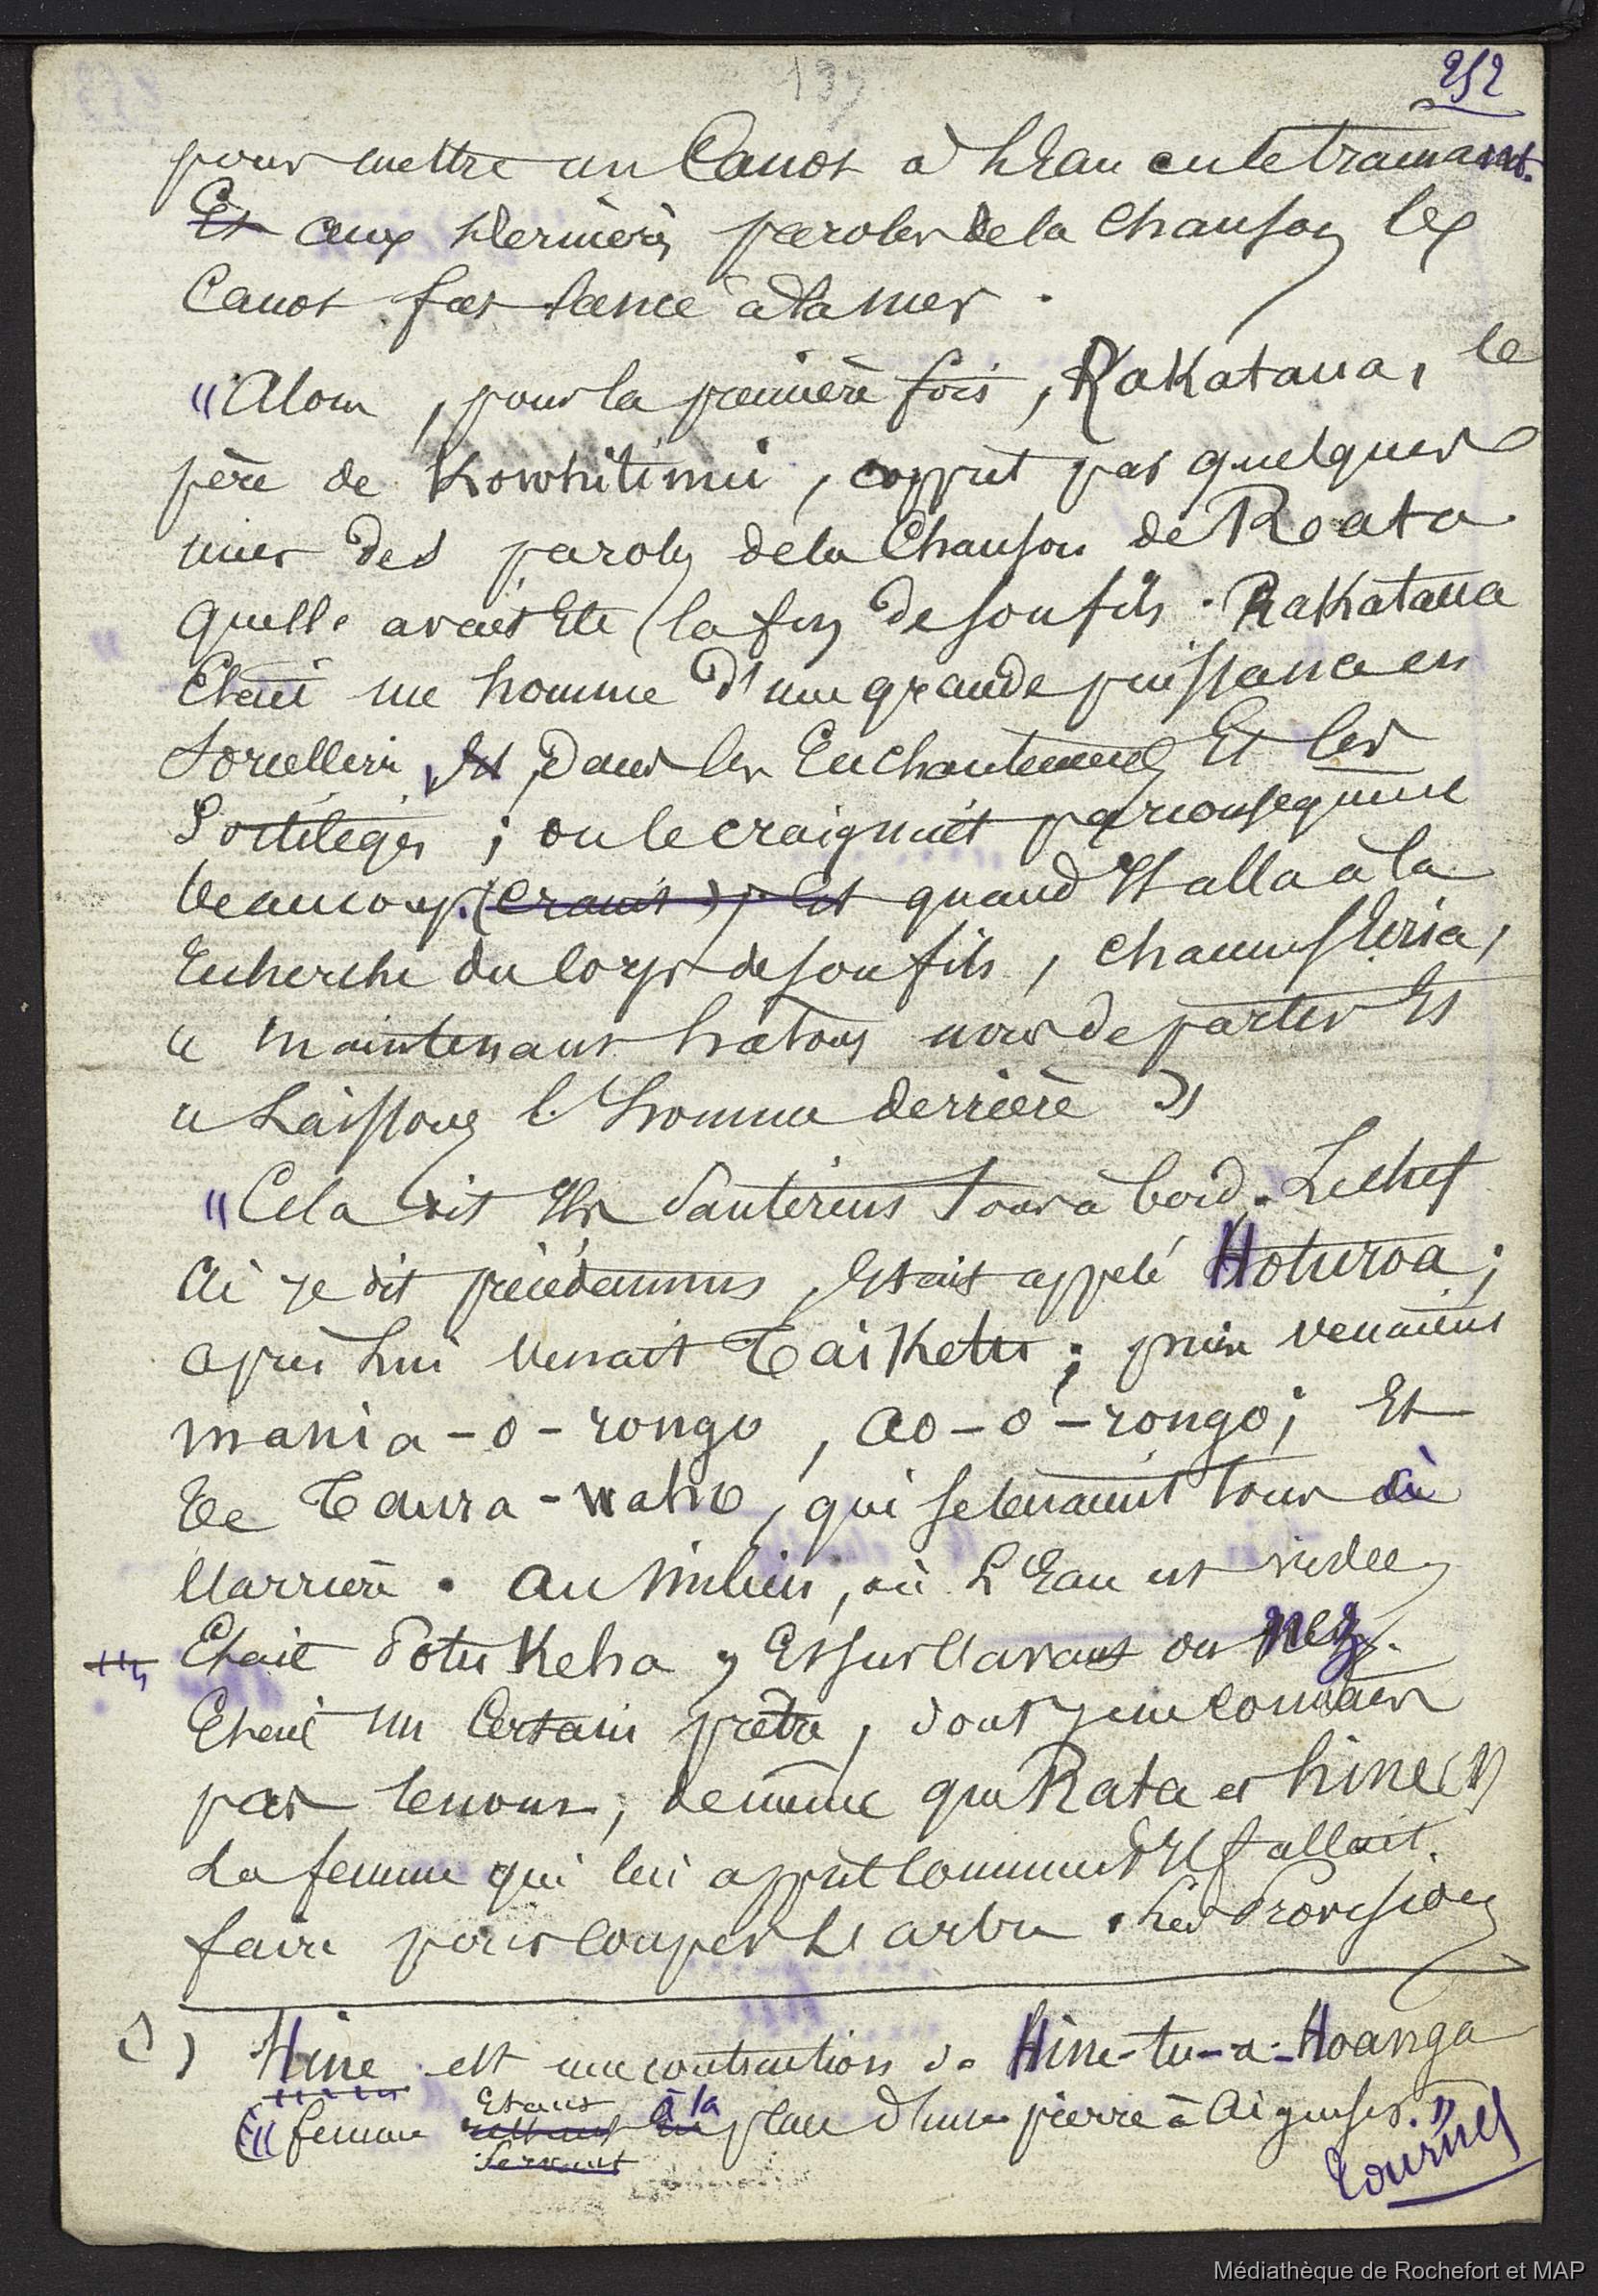 137
252
pour mettre un Canot à L'Eau en le trainant.
Et aux dernières paroles de la Chanson le
Canot fut lancé à la mer.
"Alors, pour la première fois, Rakataua, le
père de Kowhitinui, apprit par quelques
unes des paroles de la Chanson de Raata
quelle avait été la fin de son fils. Rakataua
Etait un homme d'une grande puissance en
Sorcellerie, Et dans les Enchantements Et les
Sortilèges ; on le craignait par conséquent
beaucoup. (craint) Et quand Il alla à la
recherche du corps de son fils, chacun s'écria,
" maintenant hatons nous de partir Et
" Laissons l'homme derrière »
"Cela dit Ils sautèrent tous à bord. Le chef
ai je dit précédemment, Etait appelé Hoturoa ;
après Lui venait Taiketu ; puis venaient
mania-o-rongo, ao-o-rongo ; Et
Te Taura-waho, qui se tenaient tous à
l'arrière. au milieu, où L'Eau est vidée,
Etait Potukeha ; Et sur l'avant ou nez
Etait un Certain prêtre, dont je ne connais
pas le nom ; de même que Rata et hine (1)
La femme qui lui apprit comment Il fallait
faire pour couper L'arbre. Les Provisions
1) Hine est une contraction de Hine-tu-a-Hoanga
("femme Etant à la place d'une pierre à Aiguiser.")
Servant
Tournes
Médiathèque de Rochefort et MAP